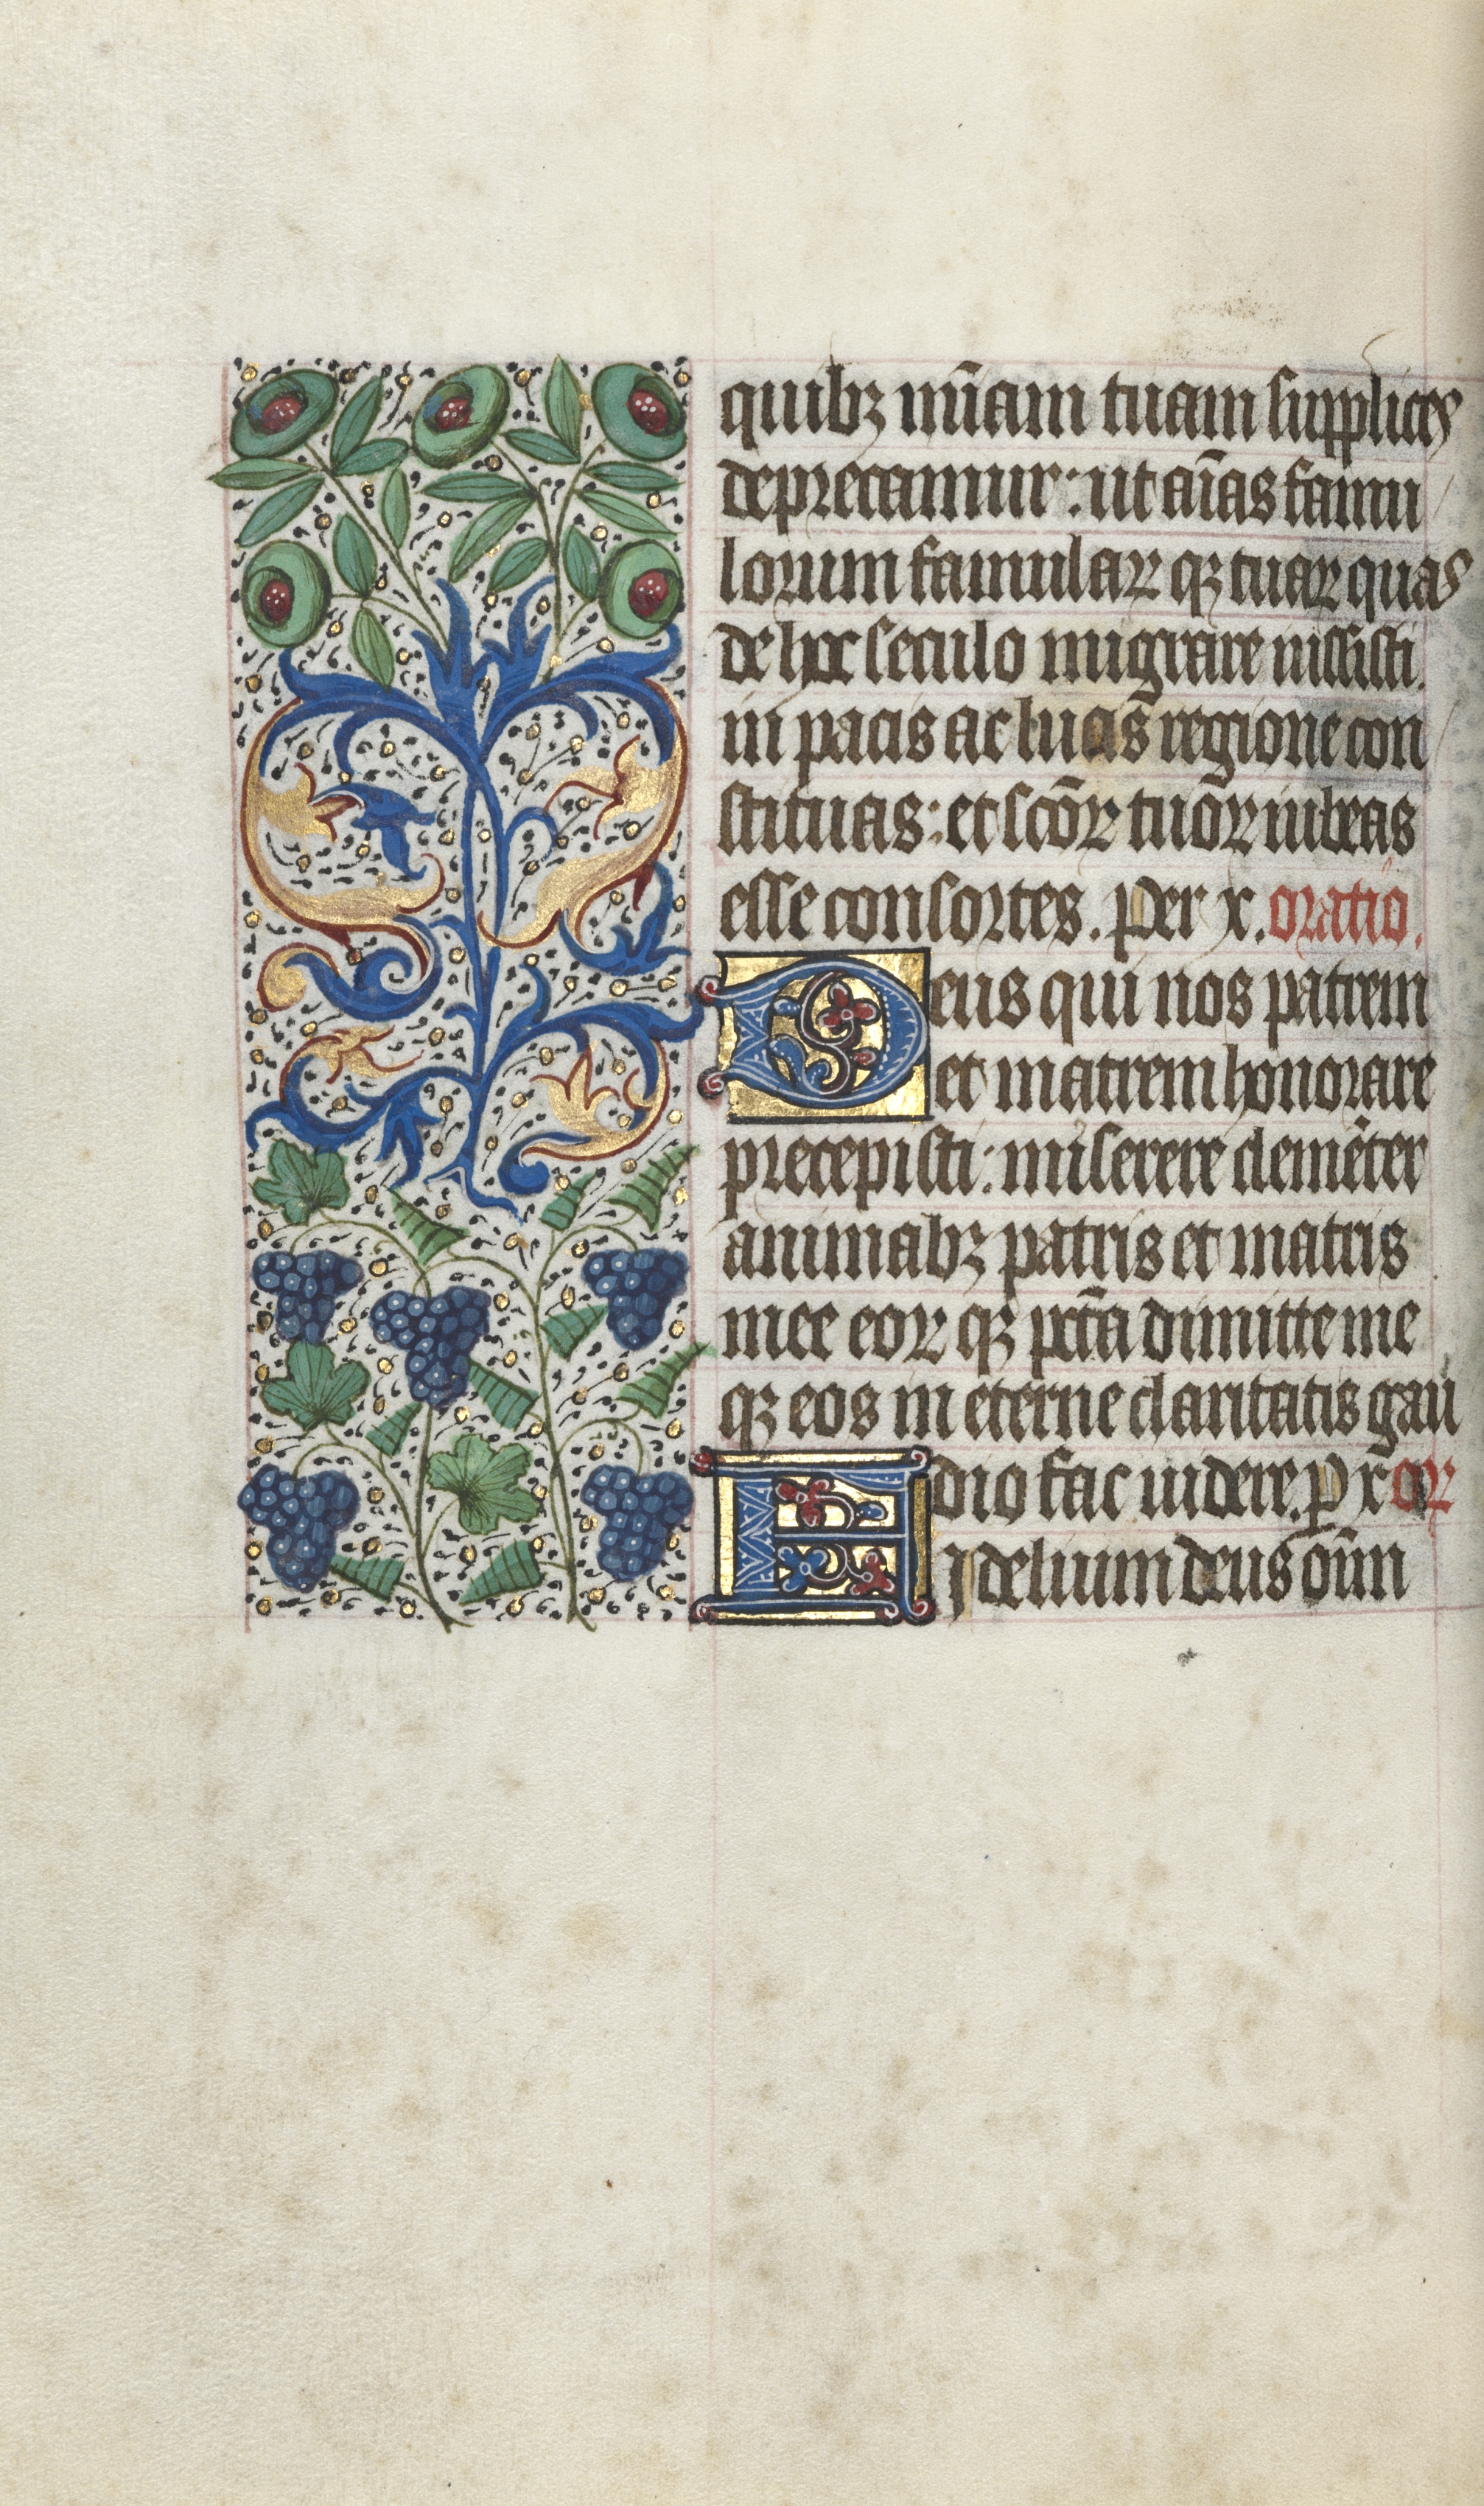 quibꝫ mi̅am tuam supplices
deprecamur: ut ai̅as famu
lorum famulaꝝ qꝫ tuaꝝ quas
de hoc seculo migrare iussisti.
in pacis ac lucis regione con
stituas: et sco̅ꝝ tuo̅ꝝ iubeas
esse consortes. Per x. oratio.
Deus qui nos patrem
et matrem honorare
precepisti: miserere cleme̅ter
animabꝫ patris et matris
mee eoꝝ qꝫ pcc̅a dimitte me
qꝫ eos in eterne claritatis gau
dio fac uidere. p x̅ oꝝ
Fidelium deus om̅n